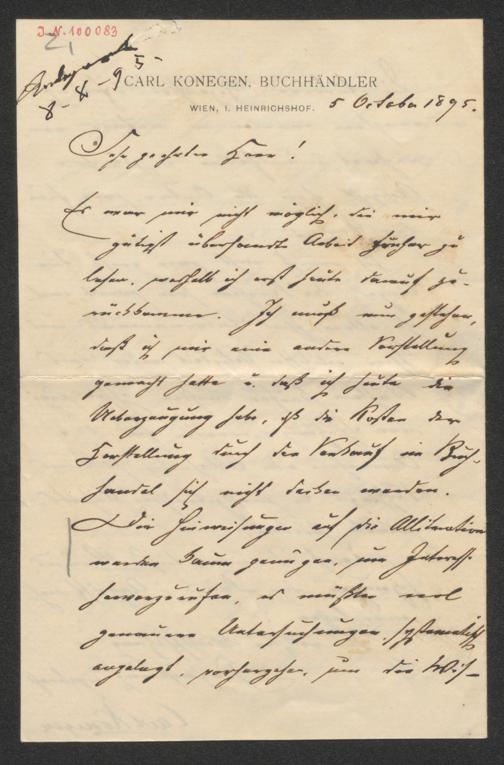 J.N. 100083
8-8-95
CARL KONEGEN, BUCHHÄNDLER
WIEN, I. HEINRICHSHOF.
5 October 1895.
Sehr geehrter Herr!
Es war mir nicht möglich, die mir
gütigst übersandte Arbeit früher zu
lesen, weshalb ich erst heute darauf zu-
rückkomme. Ich muß nun gestehen,
daß ich mir eine andere Vorstellung
gemacht hatte u. daß ich heute die
Ueberzeugung habe, daß die Kosten der
Herstellung durch den Verkauf im Buch-
handel sich nicht decken werden.
Die Hinweisungen auf die Alliteration
werden kaum genügen, um Interesse
hervorzurufen, es müßten wol
genauere Untersuchungen, systematisch
angelegt, vorhergehen, um die Wis-